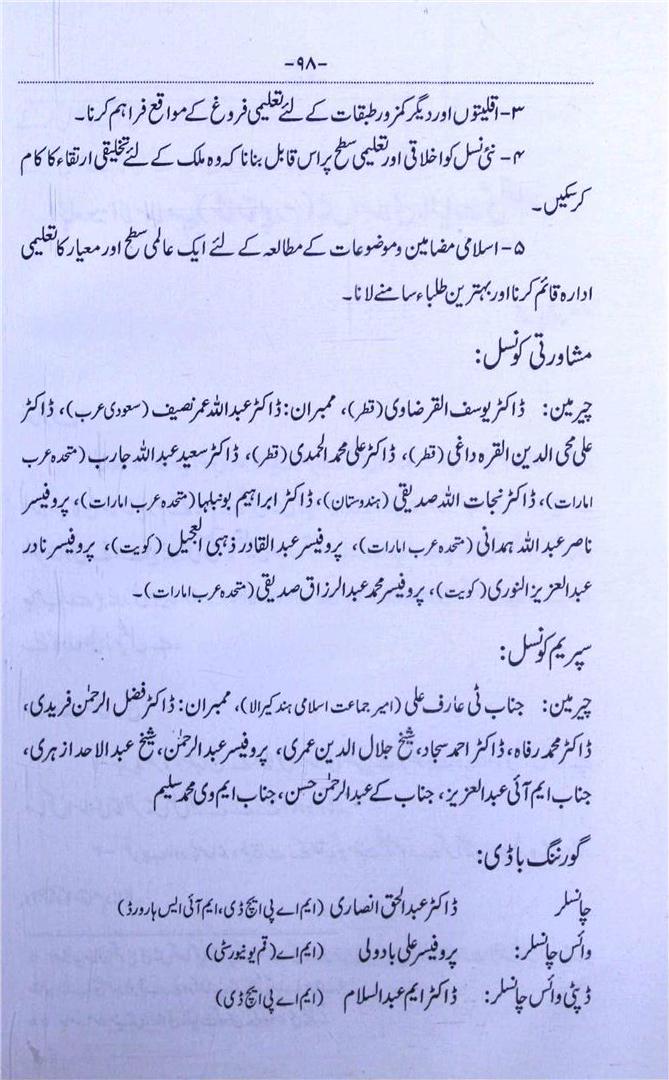 -۹۸-
۳- اقلیتوں اور دیگر کمزور طبقات کے لئے تعلیمی فروغ کے مواقع فراہم کرنا۔
۴- نئی نسل کو اخلاقی اور تعلیمی سطح پر اس قابل بنانا کہ وہ ملک کے لئے تخلیقی ارتقاء کا کام
کر سکیں۔
۵- اسلامی مضامین و موضوعات کے مطالعہ کے لئے ایک عالمی سطح اور معیار کا تعلیمی
ادارہ قائم کرنا اور بہترین طلباء سامنے لانا۔
مشاورتی کونسل:
چیرمین: ڈاکٹر یوسف القرضاوی (قطر)، ممبران: ڈاکٹر عبداللہ عمر نصیف (سعودی عرب)، ڈاکٹر
علی محی الدین القرہ داغی (قطر)، ڈاکٹر علی محمد الحمدی (قطر)، ڈاکٹر سعید عبداللہ جارب (متحدہ عرب
امارات)، ڈاکٹر نجات اللہ صدیقی (ہندوستان)، ڈاکٹر ابراہیم بونیلہا (متحدہ عرب امارات)، پروفیسر
ناصر عبداللہ ہمدانی (متحدہ عرب امارات)، پروفیسر عبدالقادر ذہبی العجیل (کویت)، پروفیسر نادر
عبدالعزیز النوری (کویت)، پروفیسر محمد عبدالرزاق صدیقی (متحدہ عرب امارات)۔
سپریم کونسل:
چیرمین: جناب ٹی عارف علی (امیر جماعت اسلامی ہند کیرالا)، ممبران: ڈاکٹر فضل الرحمٰن فریدی،
ڈاکٹر محمد رفاہ، ڈاکٹر احمد سجاد، شیخ جلال الدین عمری، پروفیسر عبدالرحمٰن، شیخ عبدالاحد ازہری،
جناب ایم آئی عبدالعزیز، جناب کے عبدالرحمٰن حسن، جناب ایم وی محمد سلیم
گورننگ باڈی:
چانسلر ڈاکٹر عبدالحق انصاری (ایم اے پی ایچ ڈی، ایم آئی ایس ہارورڈ)
وائس چانسلر: پروفیسر علی بادولی (ایم اے (قم یونیورسٹی)
ڈپٹی وائس چانسلر: ڈاکٹر ایم عبدالسلام (ایم اے پی ایچ ڈی)